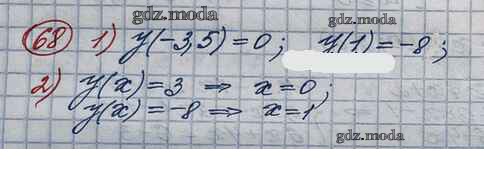 gdz.moda
gdz.moda
68 1) y(-3,5) = 0; y(1) = -8;
gdz.moda
2) y(x) = 3 ⇒ x = 0;
y(x) = -8 ⇒ x = 1
gdz.moda